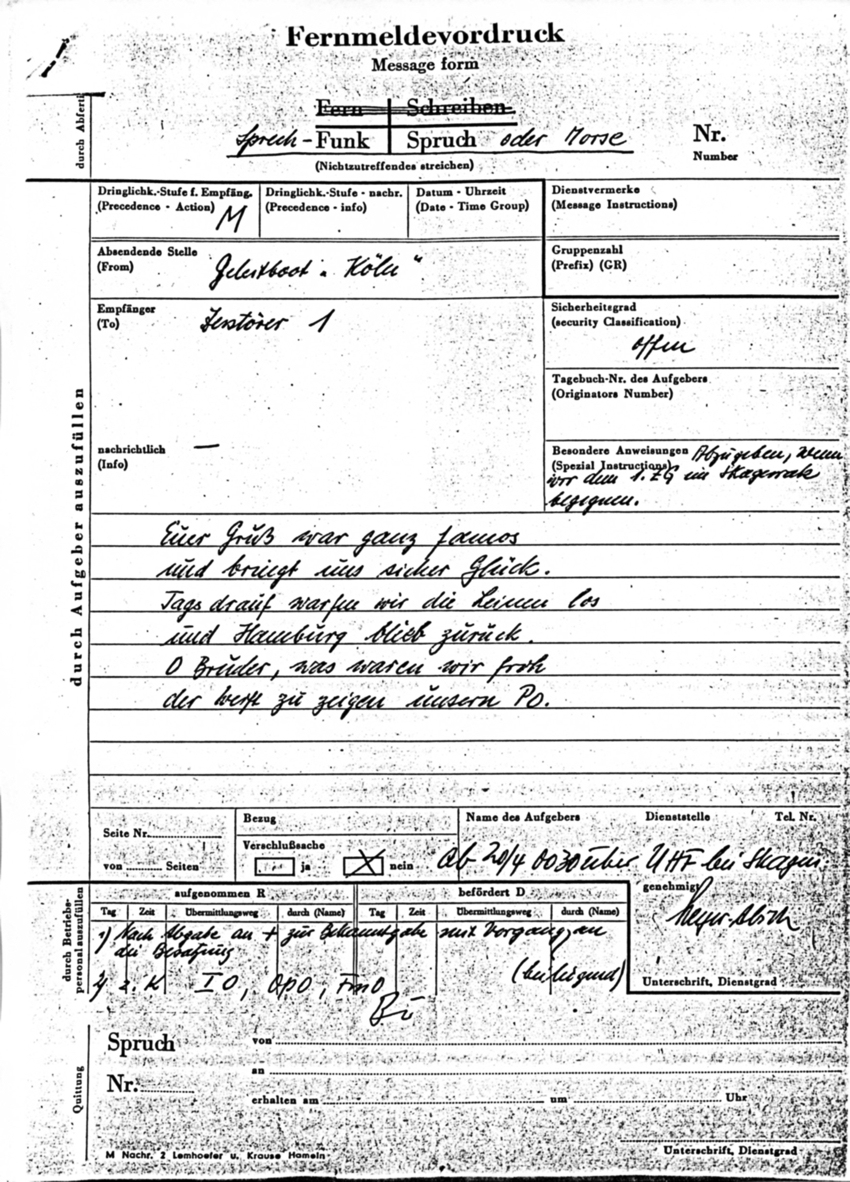 Fernmeldevordruck
Message form
durch Abferti
Fern Schreiben
Sprech-Funk Spruch oder Morse
(Nichtzutreffendes streichen)
Nr.
Number
Dringlichk.-Stufe f. Empfäng.
(Precedence - Action) M
Dringlichk.-Stufe - nachr.
(Precedence - info)
Datum - Uhrzeit
(Date - Time Group)
Dienstvermerke
(Message Instructions)
Absendende Stelle
(From) Geleitboot "Köln"
Gruppenzahl
(Prefix) (GR)
Empfänger
(To) Zerstörer 1
Sicherheitsgrad
(security Classification)
offen
Tagebuch-Nr. des Aufgebers
(Originators Number)
nachrichtlich —
(Info)
Besondere Anweisungen Abzugeben, wenn
(Spezial Instructions)
wir dem 1. ZG im Skagerrak
begegnen.
durch Aufgeber auszufüllen
Euer Gruß war ganz famos
und bringt uns sicher Glück.
Tags drauf warfen wir die Leinen los
und Hamburg blieb zurück.
O Brüder, was waren wir froh
der Werft zu zeigen unsern PO.
Seite Nr.
von Seiten
Bezug
Verschlußsache
ja nein
Name des Aufgebers Dienststelle Tel. Nr.
ab 20/4 0030 über UHF bei Skagen
durch Betriebs-
personal auszufüllen
aufgenommen R befördert D
Tag Zeit Übermittlungsweg durch (Name) Tag Zeit Übermittlungsweg durch (Name)
1) Nach Abgabe an + zur Bekanntgabe mit Vorgang an
die Besatzung
(beiliegend)
2) z. K IO, OPO, FmO
genehmigt
Meyer-Abich
Unterschrift, Dienstgrad
Quittung
Spruch
Nr.
von
an
erhalten am um Uhr
Unterschrift, Dienstgrad
M Nachr. 2 Lemhoefer u. Krause Hameln